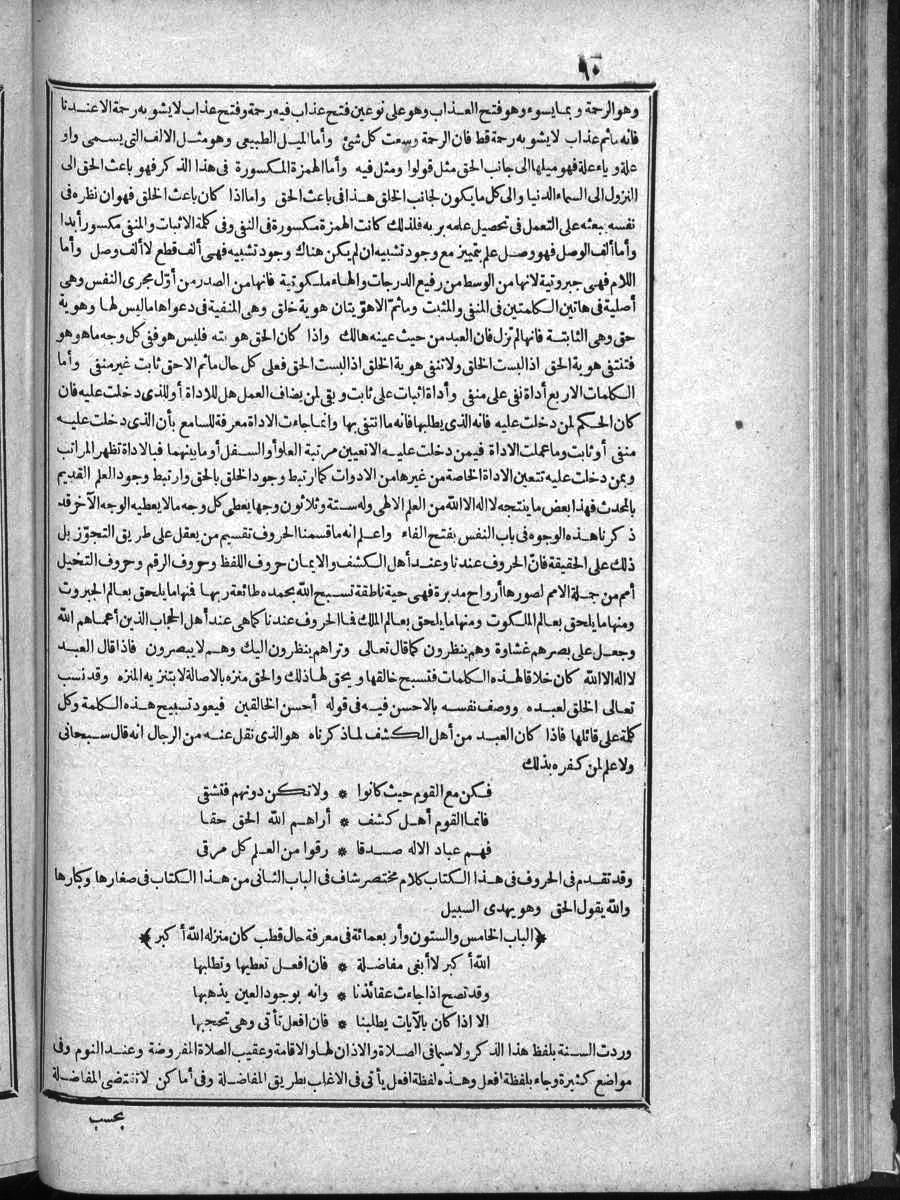 ٩٠
وهو الرحمة وبما يسوء وهو فتح العذاب وهو على نوعين فتح عذاب فيه رحمة وفتح عذاب لا يشوبه رحمة الا عندنا
فانه ما ثم عذاب لا يشوبه رحمة قط فان الرحمة وسعت كل شئ وأما الميل الطبيعى وهو مثل الالف التى يسمى واو
علة وياء علة فهو ميلها الى جانب الحق مثل قولوا ومثل فيه وأما الهمزة المكسورة فى هذا الذكر فهو باعث الحق الى
النزول الى السماء الدنيا والى كل ما يكون لجانب الخلق هذا فى باعث الحق واما اذا كان باعث الخلق فهو ان نظره فى
نفسه يبعثه على التعمل فى تحصيل علمه بربه فلذلك كانت الهمزة مكسورة فى النفى وفى كلمة الاثبات والمنفى مكسور أبدا
وأما ألف الوصل فهو وصل علم بتمييز مع وجود تشبيه ان لم يكن هناك وجود تشبيه فهى ألف قطع لا ألف وصل وأما
اللام فهى جبروتية لانها من الوسط من رفيع الدرجات والهاء ملكوتية فانها من الصدر من أوّل مجرى النفس وهى
أصلية فى هاتين الكلمتين فى المنفى والمثبت وما ثم الا هو يتان هوية خلق وهى المنفية فى دعواها ما ليس لها وهوية
حق وهى الثابتة فانها لم تزل فان العبد من حيث عينه هالك واذا كان الحق هويته فليس هو ففى كل وجه ما هو هو
فتنتفى هوية الحق اذا لبست الخلق ولا تنفى هوية الخلق اذا لبست الحق فعلى كل حال ما ثم الا حق ثابت غير منفى وأما
الكلمات الاربع أداة نفى على منفى وأداة اثبات على ثابت وبقى لمن يضاف العمل هل للاداة أو للذى دخلت عليه فان
كان الحكم لمن دخلت عليه فانه الذى يطلبها فانه ما انتفى بها وانما جاءت الاداة معرفة للسامع بأن الذى دخلت عليه
منفى أو ثابت وما عملت الاداة فيمن دخلت عليه الا تعيين مرتبة العلو أو السفل أو ما بينهما فبالاداة تظهر المراتب
وبمن دخلت عليه تتعين الاداة الخاصة من غيرها من الادوات كما ارتبط وجود الخلق بالحق وارتبط وجود العلم القديم
بالمحدث فهذا بعض ما ينتجه لا اله الا الله من العلم الالهى وله ستة وثلاثون وجها يعطى كل وجه ما لا يعطيه الوجه الآخر قد
ذكرنا هذه الوجوه فى باب النفس بفتح الفاء واعلم انه ما قسمنا الحروف تقسيم من يعقل على طريق التجوّز بل
ذلك على الحقيقة فانّ الحروف عندنا وعند أهل الكشف والايمان حروف اللفظ وحروف الرقم وحروف التخيل
أمم من جملة الامم لصورها أرواح مدبرة فهى حية ناطقة تسبح الله بحمده طائعة ربها فنها ما يلحق بعالم الجبروت
ومنها ما يلحق بعالم الملكوت ومنها ما يلحق بعالم الملك فما الحروف عندنا كما هى عند أهل الحجاب الذين أعماهم الله
وجعل على بصرهم غشاوة وهم ينظرون كما قال تعالى وتراهم ينظرون اليك وهم لا يبصرون فاذا قال العبد
لا اله الا الله كان خلاقا لهذه الكلمات فتسبح خالقها ويحق لها ذلك والحق منزه بالاصالة لا بتنزيه المنزه وقد نسب
تعالى الخلق لعبده ووصف نفسه بالاحسن فيه فى قوله أحسن الخالقين فيعود تسبيح هذه الكلمة وكل
كلمة على قائلها فاذا كان العبد من أهل الكشف لما ذكرناه هو الذى نقل عنه من الرجال انه قال سبحانى
ولا علم لمن كفره بذلك
فكن مع القوم حيث كانوا * ولا تكن دونهم فتشقى
فانما القوم أهل كشف * أراهم الله الحق حقا
فهم عباد الاله صدقا * رقوا من العلم كل مرقى
وقد تقدم فى الحروف فى هذا الكتاب كلام مختصر شاف فى الباب الثانى من هذا الكتاب فى صغارها وكبارها
والله يقول الحق وهو يهدى السبيل
﴿الباب الخامس والستون وأربعمائة فى معرفة حال قطب كان منزله الله أكبر﴾
الله أكبر لا أبغى مفاضلة * فان افعل تعطيها وتطلبها
وقد تصح اذا جاءت عقائدنا * وانه بوجود العين يذهبها
الا اذا كان بالآيات يطلبنا * فان افعل تأتى وهى تحجبها
وردت السنة بلفظ هذا الذكر ولا سيما فى الصلاة والاذان لها والاقامة وعقيب الصلاة المفروضة وعند النوم وفى
مواضع كثيرة وجاء بلفظة افعل وهذه لفظة افعل يأتى فى الاغلب بطريق المفاضلة وفى أماكن لا تقتضى المفاضلة
بحسب